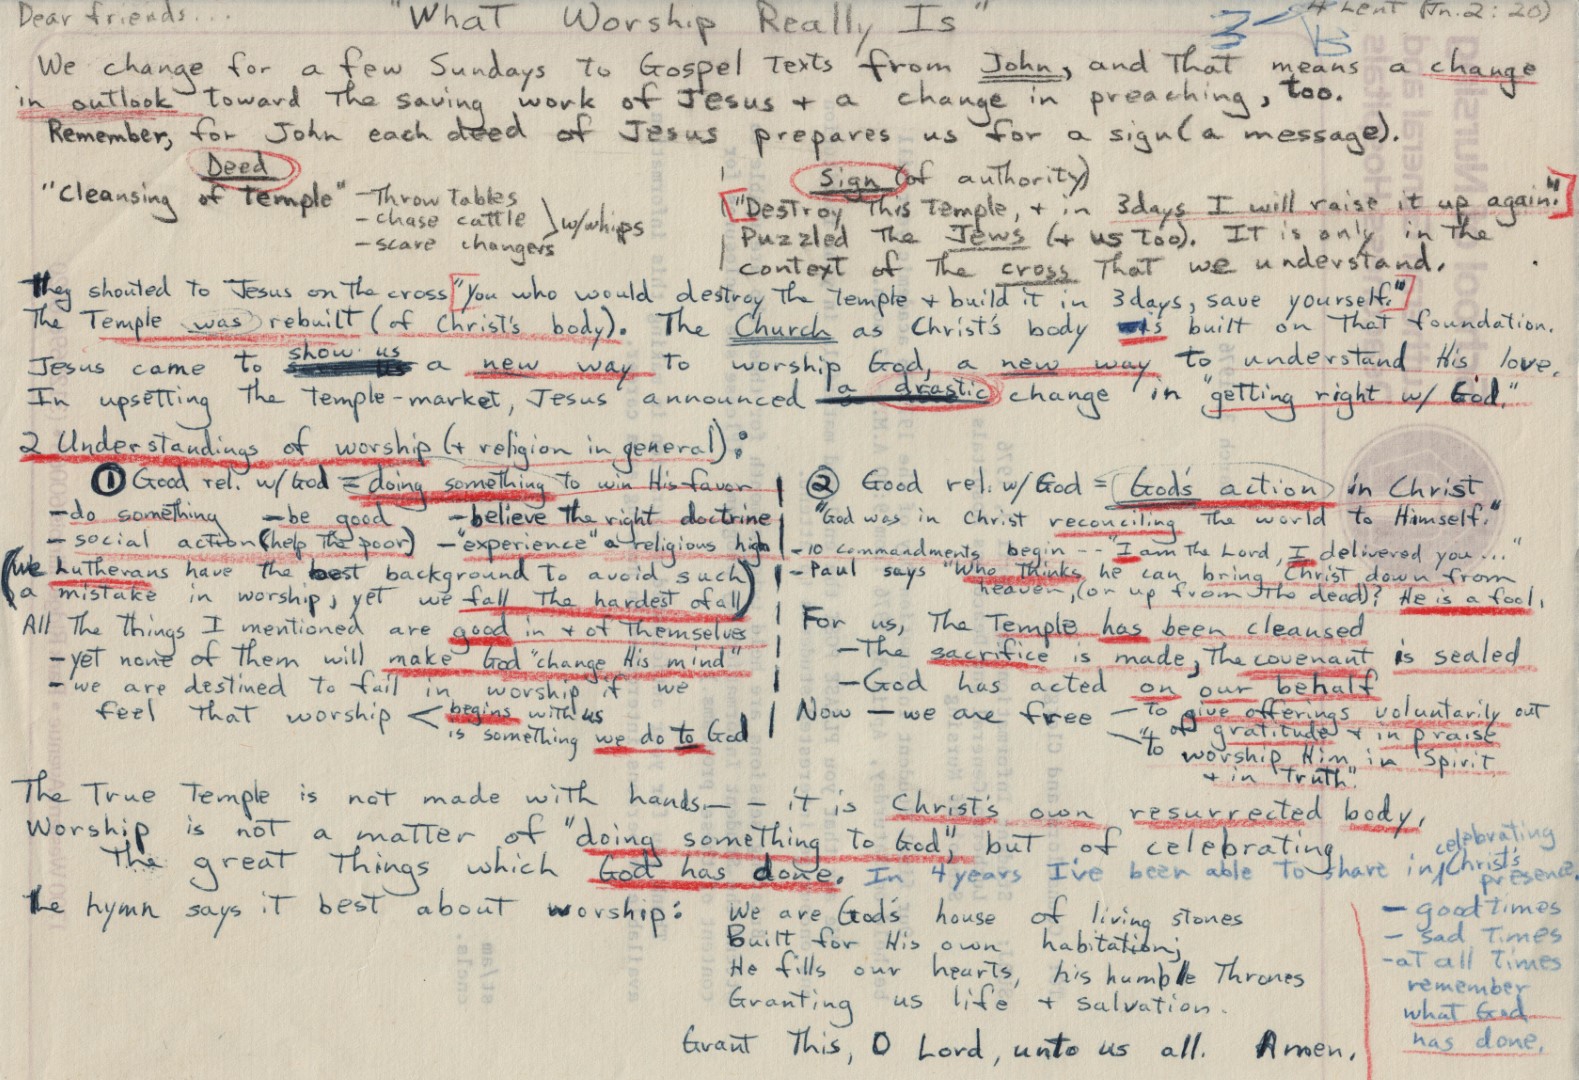 Dear friends...
"What Worship Really Is"
4 Lent (Jn. 2:20)
3 B
We change for a few Sundays to Gospel texts from John, and that means a change
in outlook toward the saving work of Jesus + a change in preaching, too.
Remember, for John each deed of Jesus prepares us for a sign (a message).
Deed
"Cleansing of Temple"
- Throw tables
- chase cattle
- scare changers
w/whips
Sign (of authority)
"Destroy this temple, + in 3 days I will raise it up again."
Puzzled the Jews (+ us too). It is only in the
context of the cross that we understand.
They shouted to Jesus on the cross "You who would destroy the temple + build it in 3 days, save yourself."
The Temple was rebuilt (of Christ's body). The Church as Christ's body is built on that foundation.
Jesus came to show us a new way to worship God, a new way to understand His love.
In upsetting the temple-market, Jesus announced a drastic change in "getting right w/ God."
2 Understandings of worship (+ religion in general):
① Good rel. w/ God = doing something to win His favor
- do something - be good - believe the right doctrine
- social action (help the poor) - "experience" a religious high
(We Lutherans have the best background to avoid such
a mistake in worship, yet we fall the hardest of all)
All the things I mentioned are good in + of themselves
- yet none of them will make God "change His mind"
- we are destined to fail in worship if we
feel that worship < begins with us
is something we do to God
② Good rel. w/ God = God's action in Christ
"God was in Christ reconciling the world to Himself."
- 10 commandments begin -- "I am the Lord, I delivered you..."
- Paul says "Who thinks he can bring Christ down from
heaven, (or up from the dead)? He is a fool.
For us, the Temple has been cleansed
- The sacrifice is made, the covenant is sealed
- God has acted on our behalf
Now - we are free - to give offerings voluntarily out
of gratitude + in praise
- "to worship Him in Spirit
+ in Truth".
The True Temple is not made with hands -- it is Christ's own resurrected body.
Worship is not a matter of "doing something to God", but of celebrating
the great things which God has done. In 4 years I've been able to share in celebrating Christ's presence.
- good times
- sad times
- at all times
remember
what God
has done.
The hymn says it best about worship: We are God's house of living stones
Built for His own habitation;
He fills our hearts, his humble thrones
Granting us life + salvation.
Grant this, O Lord, unto us all. Amen.